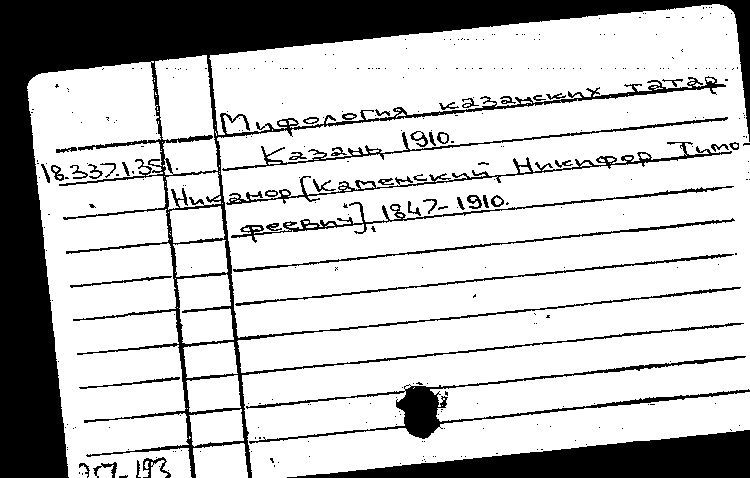 Мифология казанских татар.
18.337.1.351. Казань, 1910.
Никанор [Каменский, Никифор Тимо-
феевич], 1847-1910.
257-193